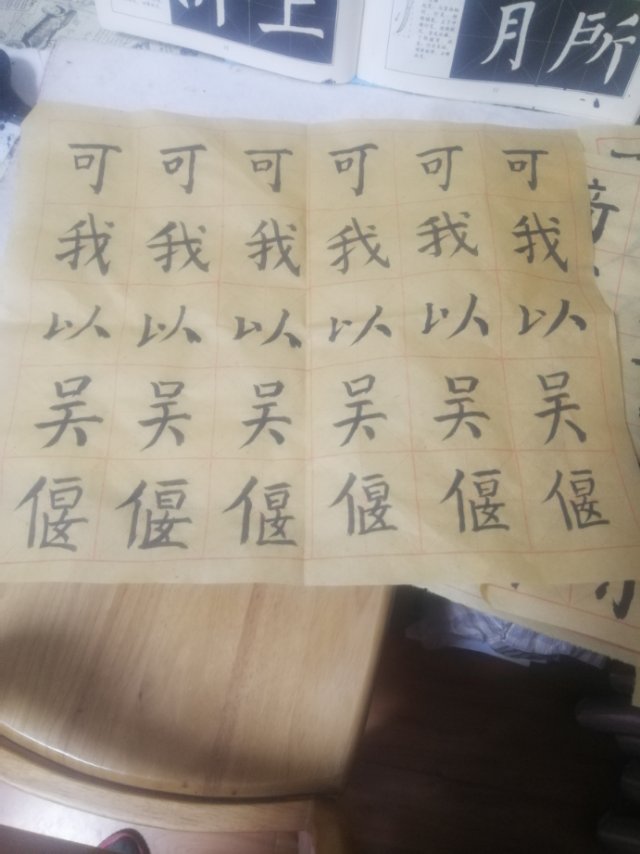 上
月所
可可可可可可
我我我我我我
以以以以以以
吴吴吴吴吴吴
偃偃偃偃偃偃